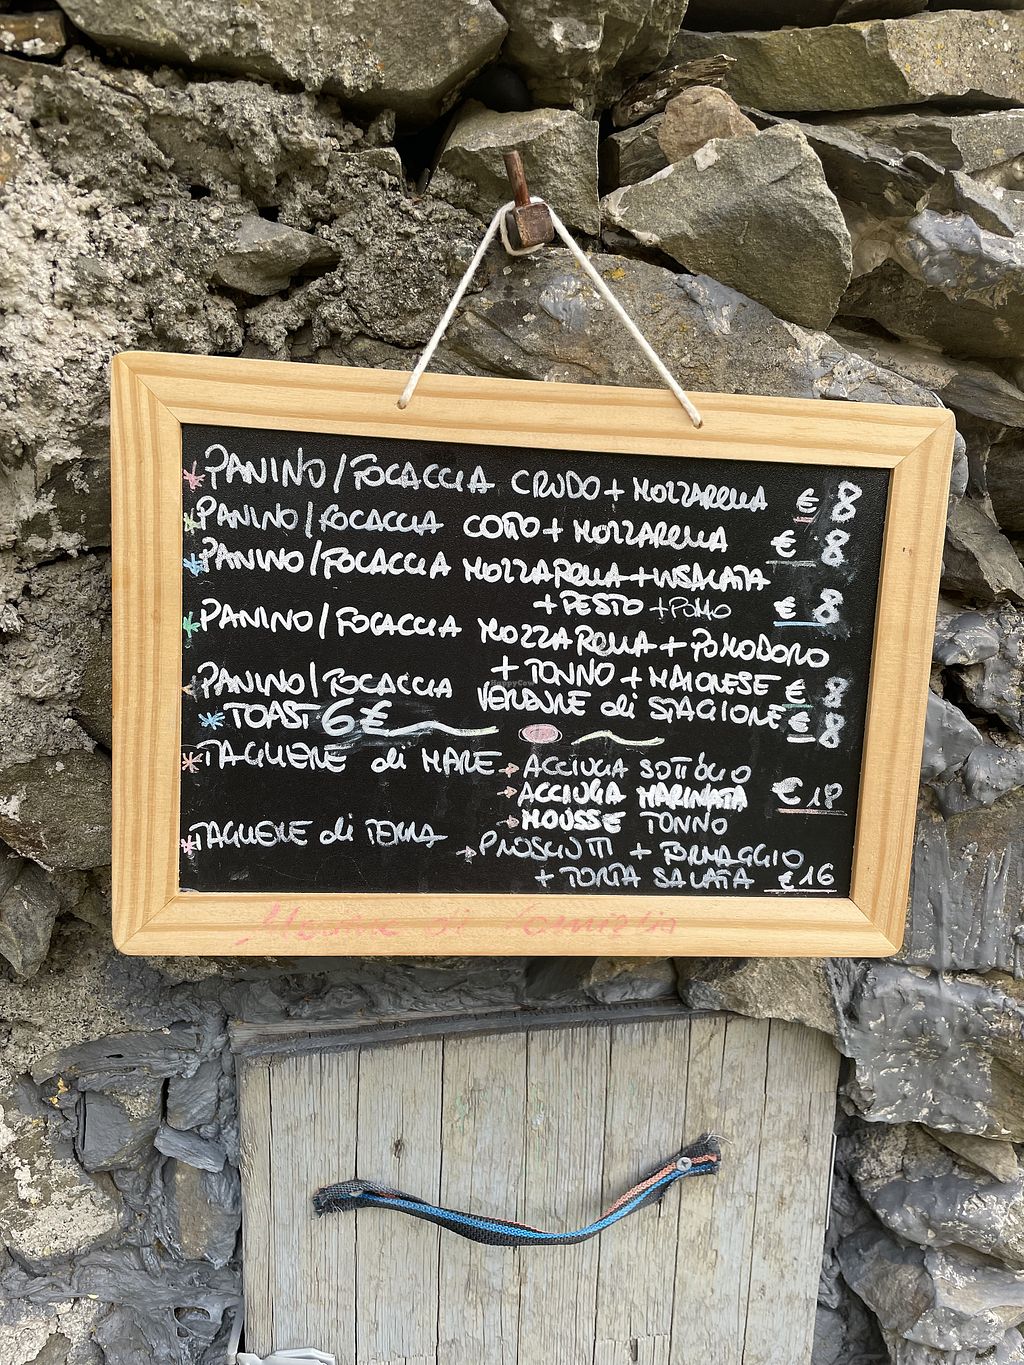 * PANINO/FOCACCIA CRUDO + MOZZARELLA € 8
* PANINO/FOCACCIA COTTO + MOZZARELLA € 8
* PANINO/FOCACCIA MOZZARELLA + INSALATA
+ PESTO + POMO € 8
* PANINO/FOCACCIA MOZZARELLA + POMODORO
+ TONNO + MAIONESE € 8
* PANINO/FOCACCIA VERDURE di STAGIONE € 8
* TOAST 6 €
* TAGLIERE di MARE → ACCIUGA SOTT'OLIO
→ ACCIUGA MARINATA € 18
→ MOUSSE TONNO
* TAGLIERE di TERRA → PROSCIUTTI + FORMAGGIO
+ TORTA SALATA € 16
di famiglia
HappyCow